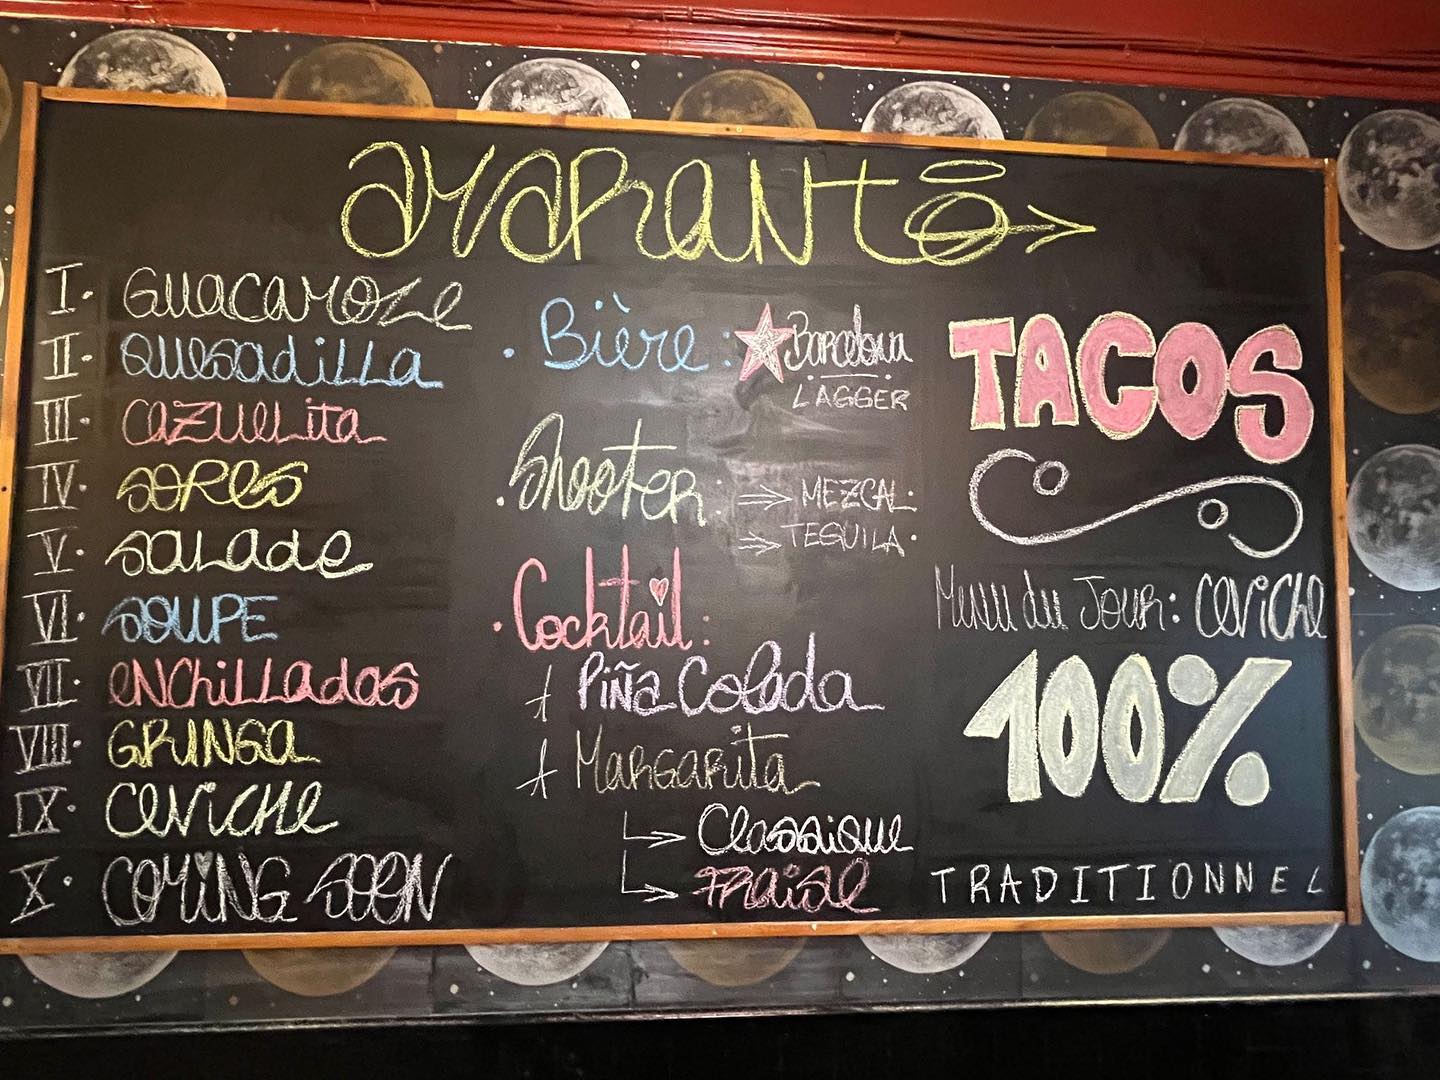 amaranto
I. Guacamole
II. Quesadilla
III. Cazuelita
IV. Sopes
V. Salade
VI. Soupe
VII. Enchilladas
VIII. Gringa
IX. Ceviche
X. Coming Soon
. Bière : Barcelona
LAGGER
. Shooter : MEZCAL.
TEQUILA.
. Cocktail :
Piña Colada
Margarita
Classique
Fraise
TACOS
Menu du Jour : Ceviche
100%
TRADITIONNEL